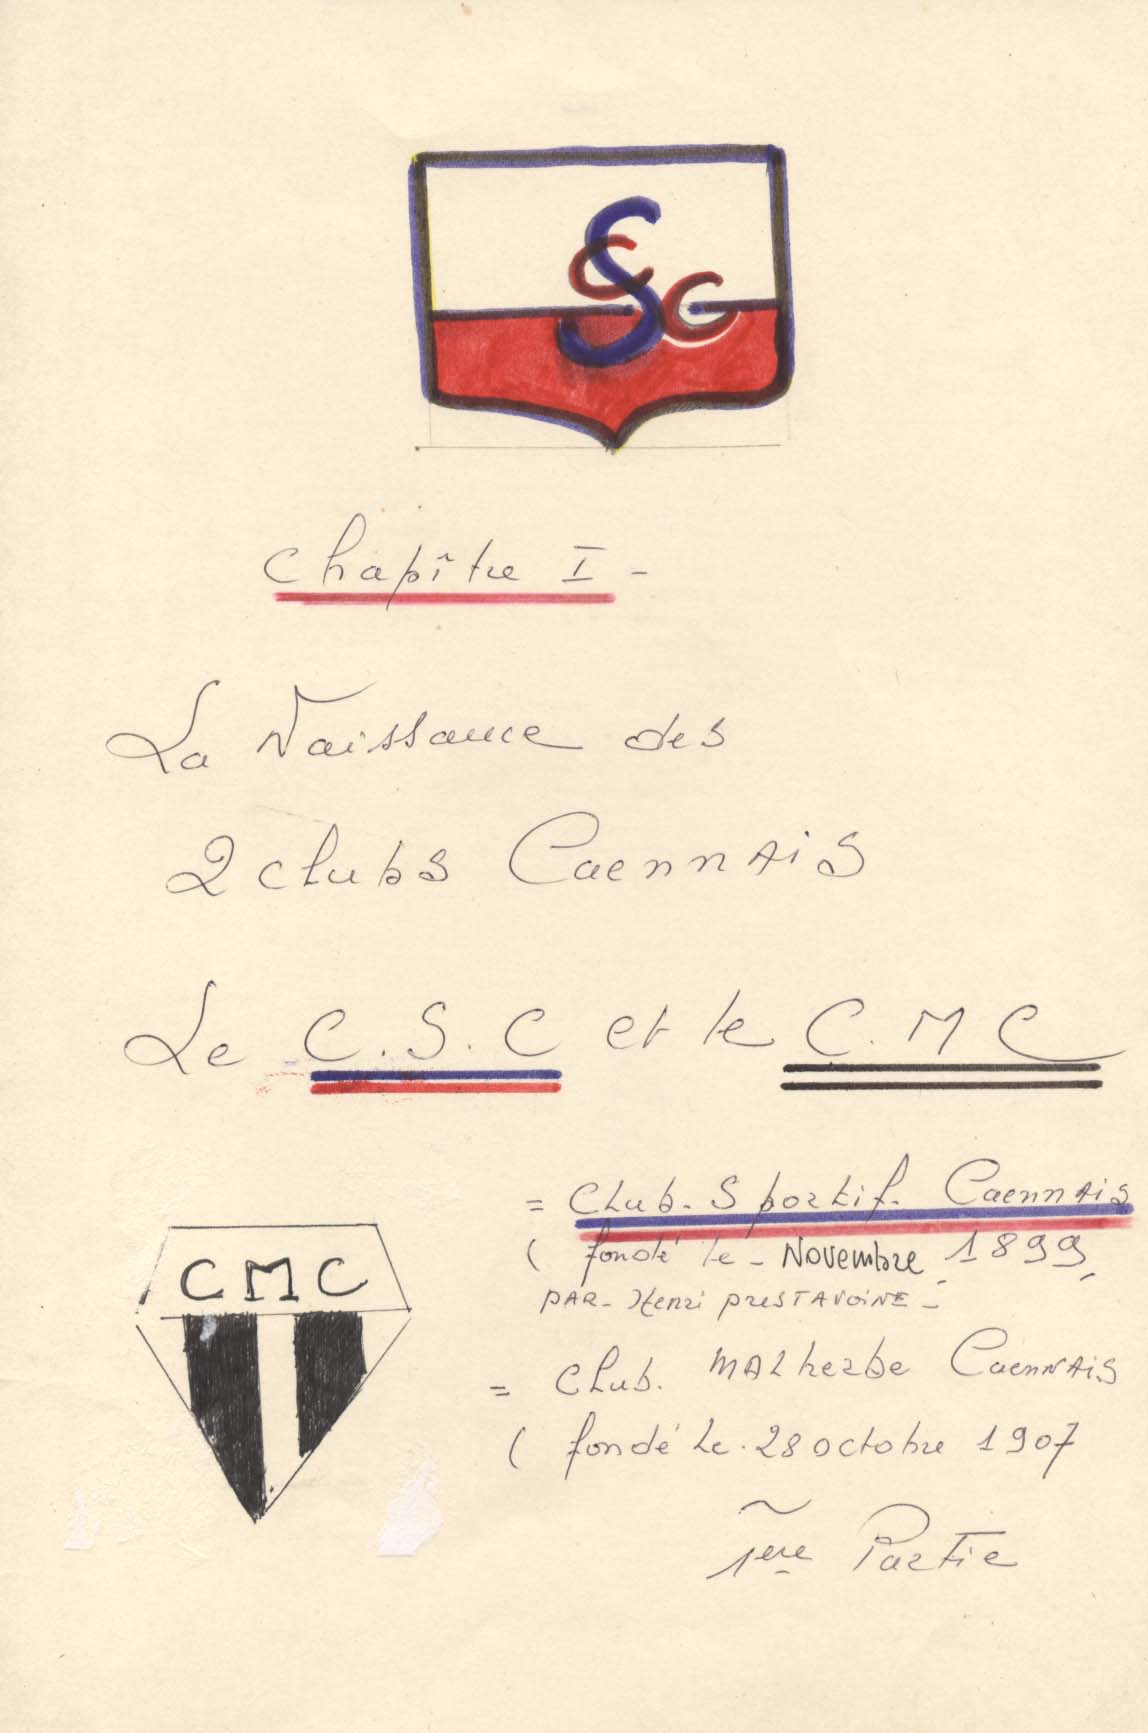 CSC
Chapître I -
La Naissance des
2 clubs Caennais
Le C.S.C et le C.M C
= Club. Sportif. Caennais
( fondé le - Novembre 1899,
PAR - Henri presTAVoiNE -
CMC
= Club. MALherbe CaenNAiS
( fondé Le. 28 octobre 1907
1ere Partie